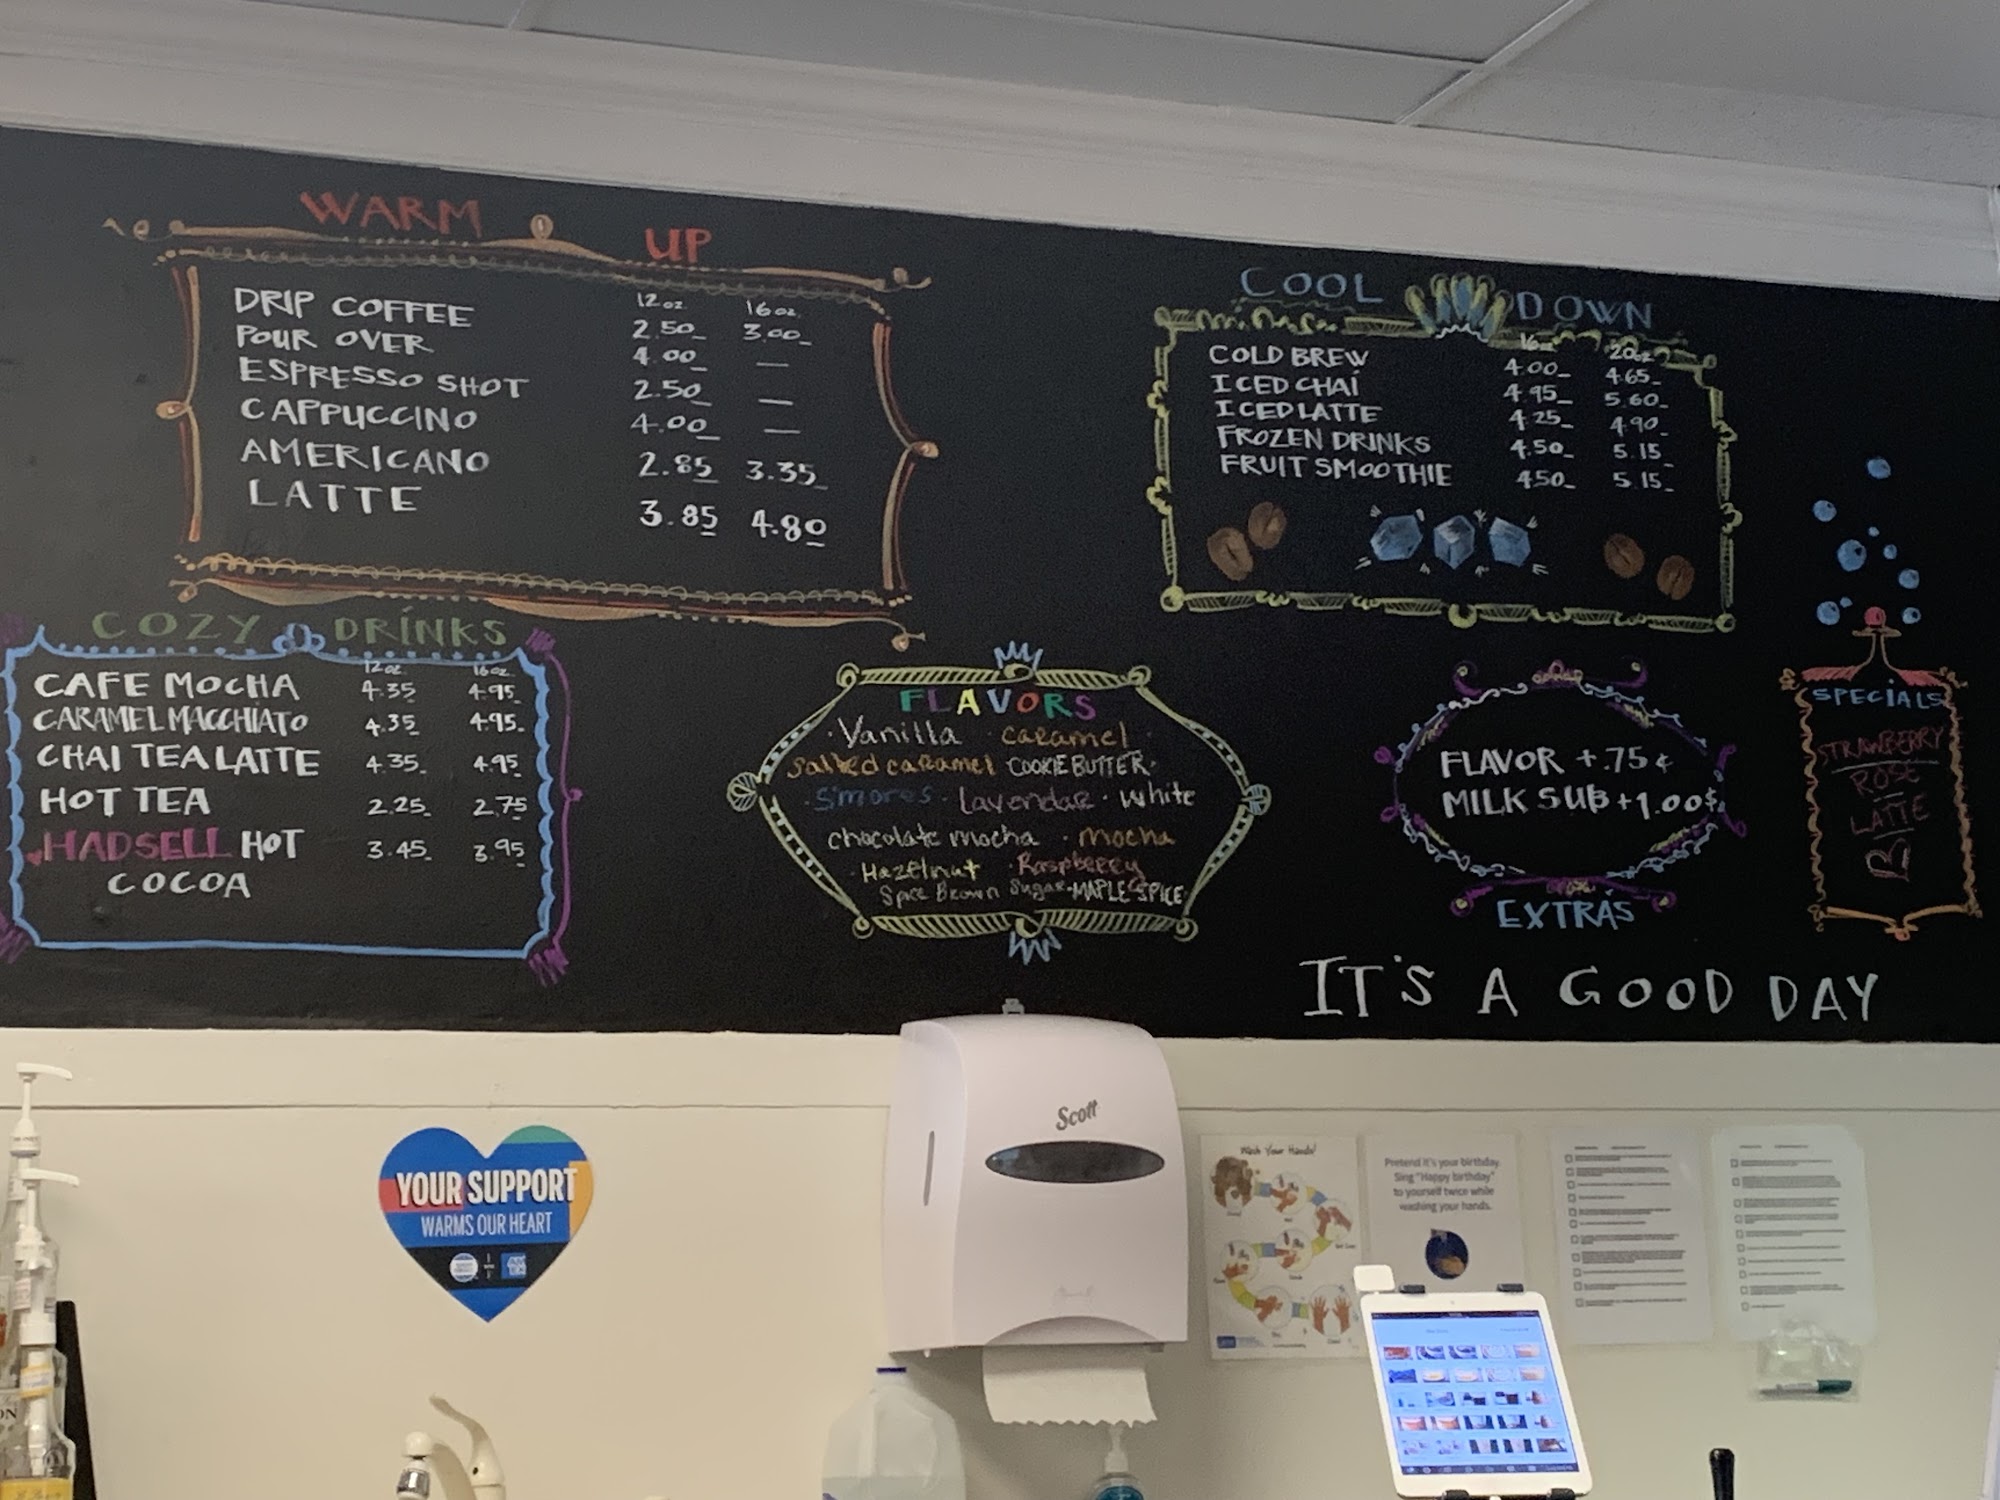 WARM UP
12oz 16oz.
DRIP COFFEE 2.50 3.00
POUR OVER 4.00 —
ESPRESSO SHOT 2.50 —
CAPPUCCINO 4.00 —
AMERICANO 2.85 3.35
LATTE 3.85 4.80
COZY DRINKS
12oz 16oz.
CAFE MOCHA 4.35 4.95
CARAMEL MACCHIATO 4.35 4.95
CHAI TEA LATTE 4.35 4.95
HOT TEA 2.25 2.75
HADSELL HOT 3.45 3.95
COCOA
COOL DOWN
16oz 20oz
COLD BREW 4.00 4.65
ICED CHAI 4.95 5.60
ICED LATTE 4.25 4.90
FROZEN DRINKS 4.50 5.15
FRUIT SMOOTHIE 4.50 5.15
FLAVORS
· Vanilla · caramel ·
salted caramel COOKIE BUTTER ·
· S'mores · Lavendar · white
chocolate mocha · mocha
· Hazelnut · Raspberry
Spice Brown Sugar · MAPLE SPICE
FLAVOR + .75¢
MILK SUB + 1.00$
EXTRAS
SPECIALS
STRAWBERRY
ROSE
LATTE
IT'S A GOOD DAY
YOUR SUPPORT
WARMS OUR HEART
Scott
Wash Your Hands!
Pretend it's your birthday.
Sing "Happy birthday"
to yourself twice while
washing your hands.